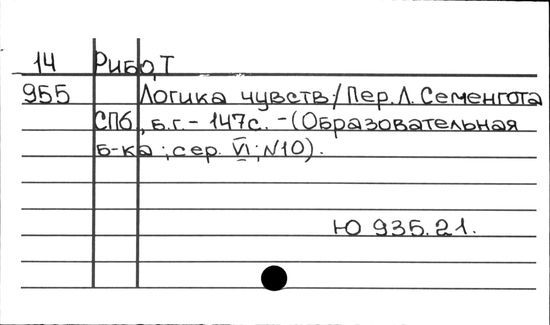 14 Рибо, Т
955 Логика чувств / Пер. Л. Семенгота
СПб, б.г. - 147с. - (Образовательная
б-ка; сер. VI; N10).
Ю 935.21.